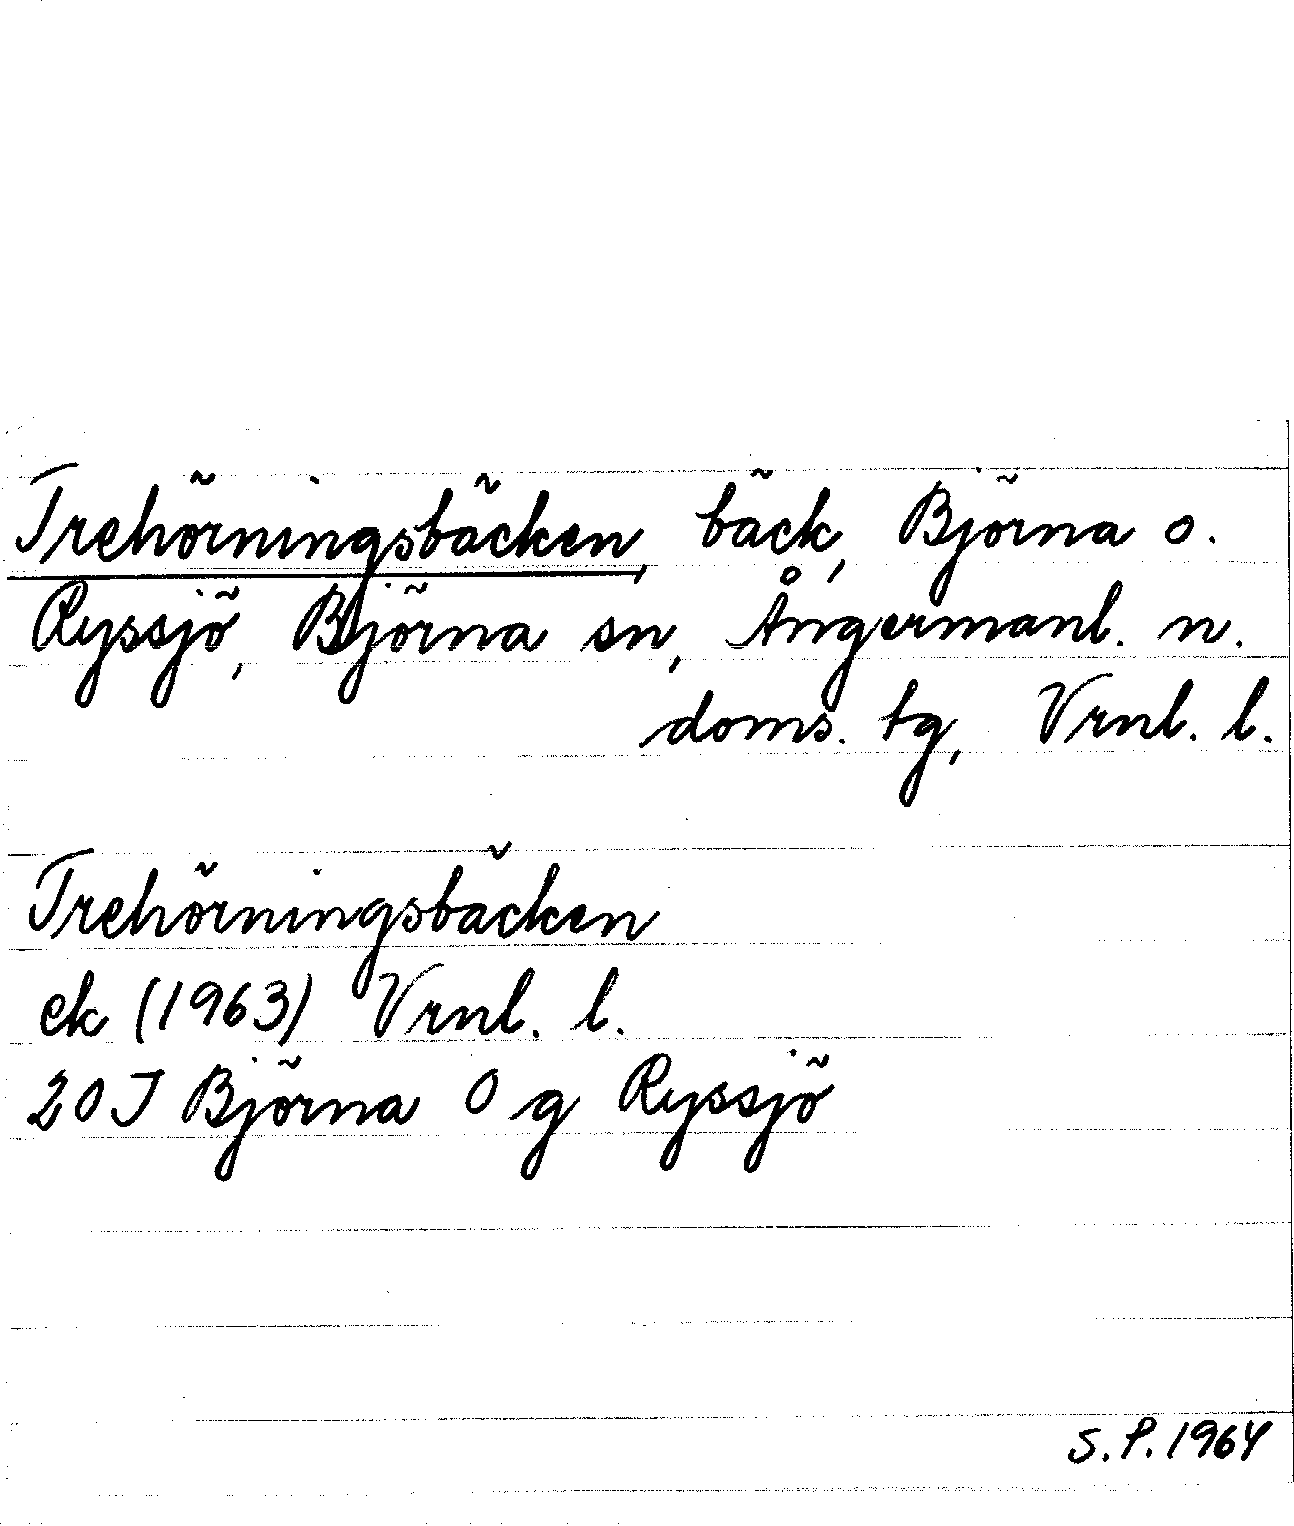 Trehörningsbäcken, bäck, Björna o.
Ryssjö, Björna sn, Ångermanl. n.
doms. tg, Vrnl. l.
Trehörningsbäcken
ek (1963) Vrnl. l.
20J Björna O g Ryssjö
S.P. 1964